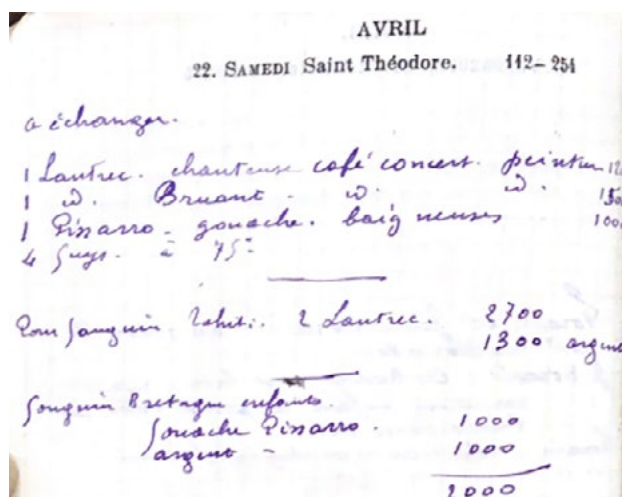 AVRIL
22. SAMEDI Saint Théodore. 112-254
a échanger.
1 Lautrec. chanteuse café concert. peinture 12
1 d. Bruant - d. d. 150
1 Pissarro - gouache. baigneuses 100
4 Guys. à 75-
Pour Gauguin Tahiti. 2 Lautrec. 2700
1300 argent
Gauguin Bretagne enfants.
Gouache Pissarro. 1000
argent - 1000
2000